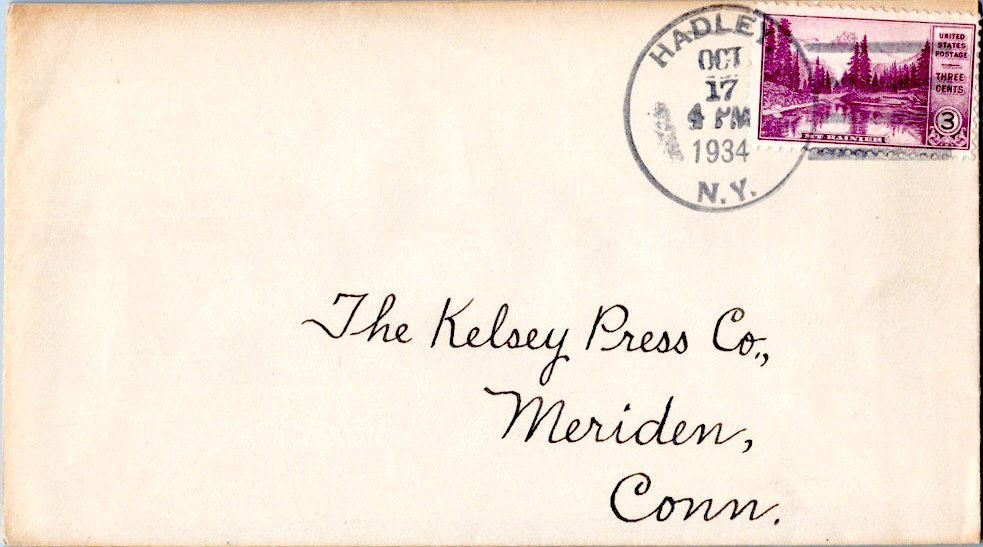 HADLEY
OCT
17
4 PM
1934
N.Y.
UNITED
STATES
POSTAGE
THREE
CENTS
3
MT. RAINIER
The Kelsey Press Co.,
Meriden,
Conn.